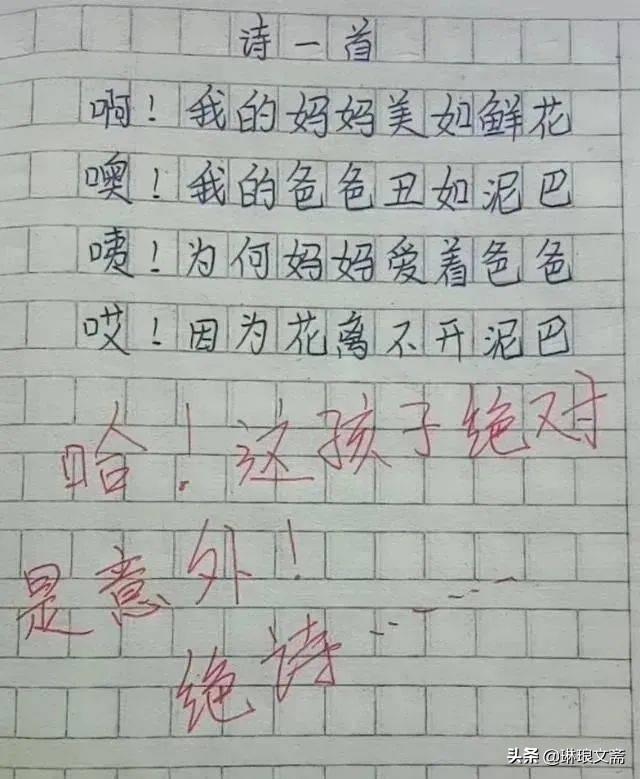 诗一首
啊！我的妈妈美如鲜花
噢！我的爸爸丑如泥巴
咦！为何妈妈爱着爸爸
哎！因为花离不开泥巴
哈！这孩子绝对
是意外！
绝诗……
头条 @琳琅文斋